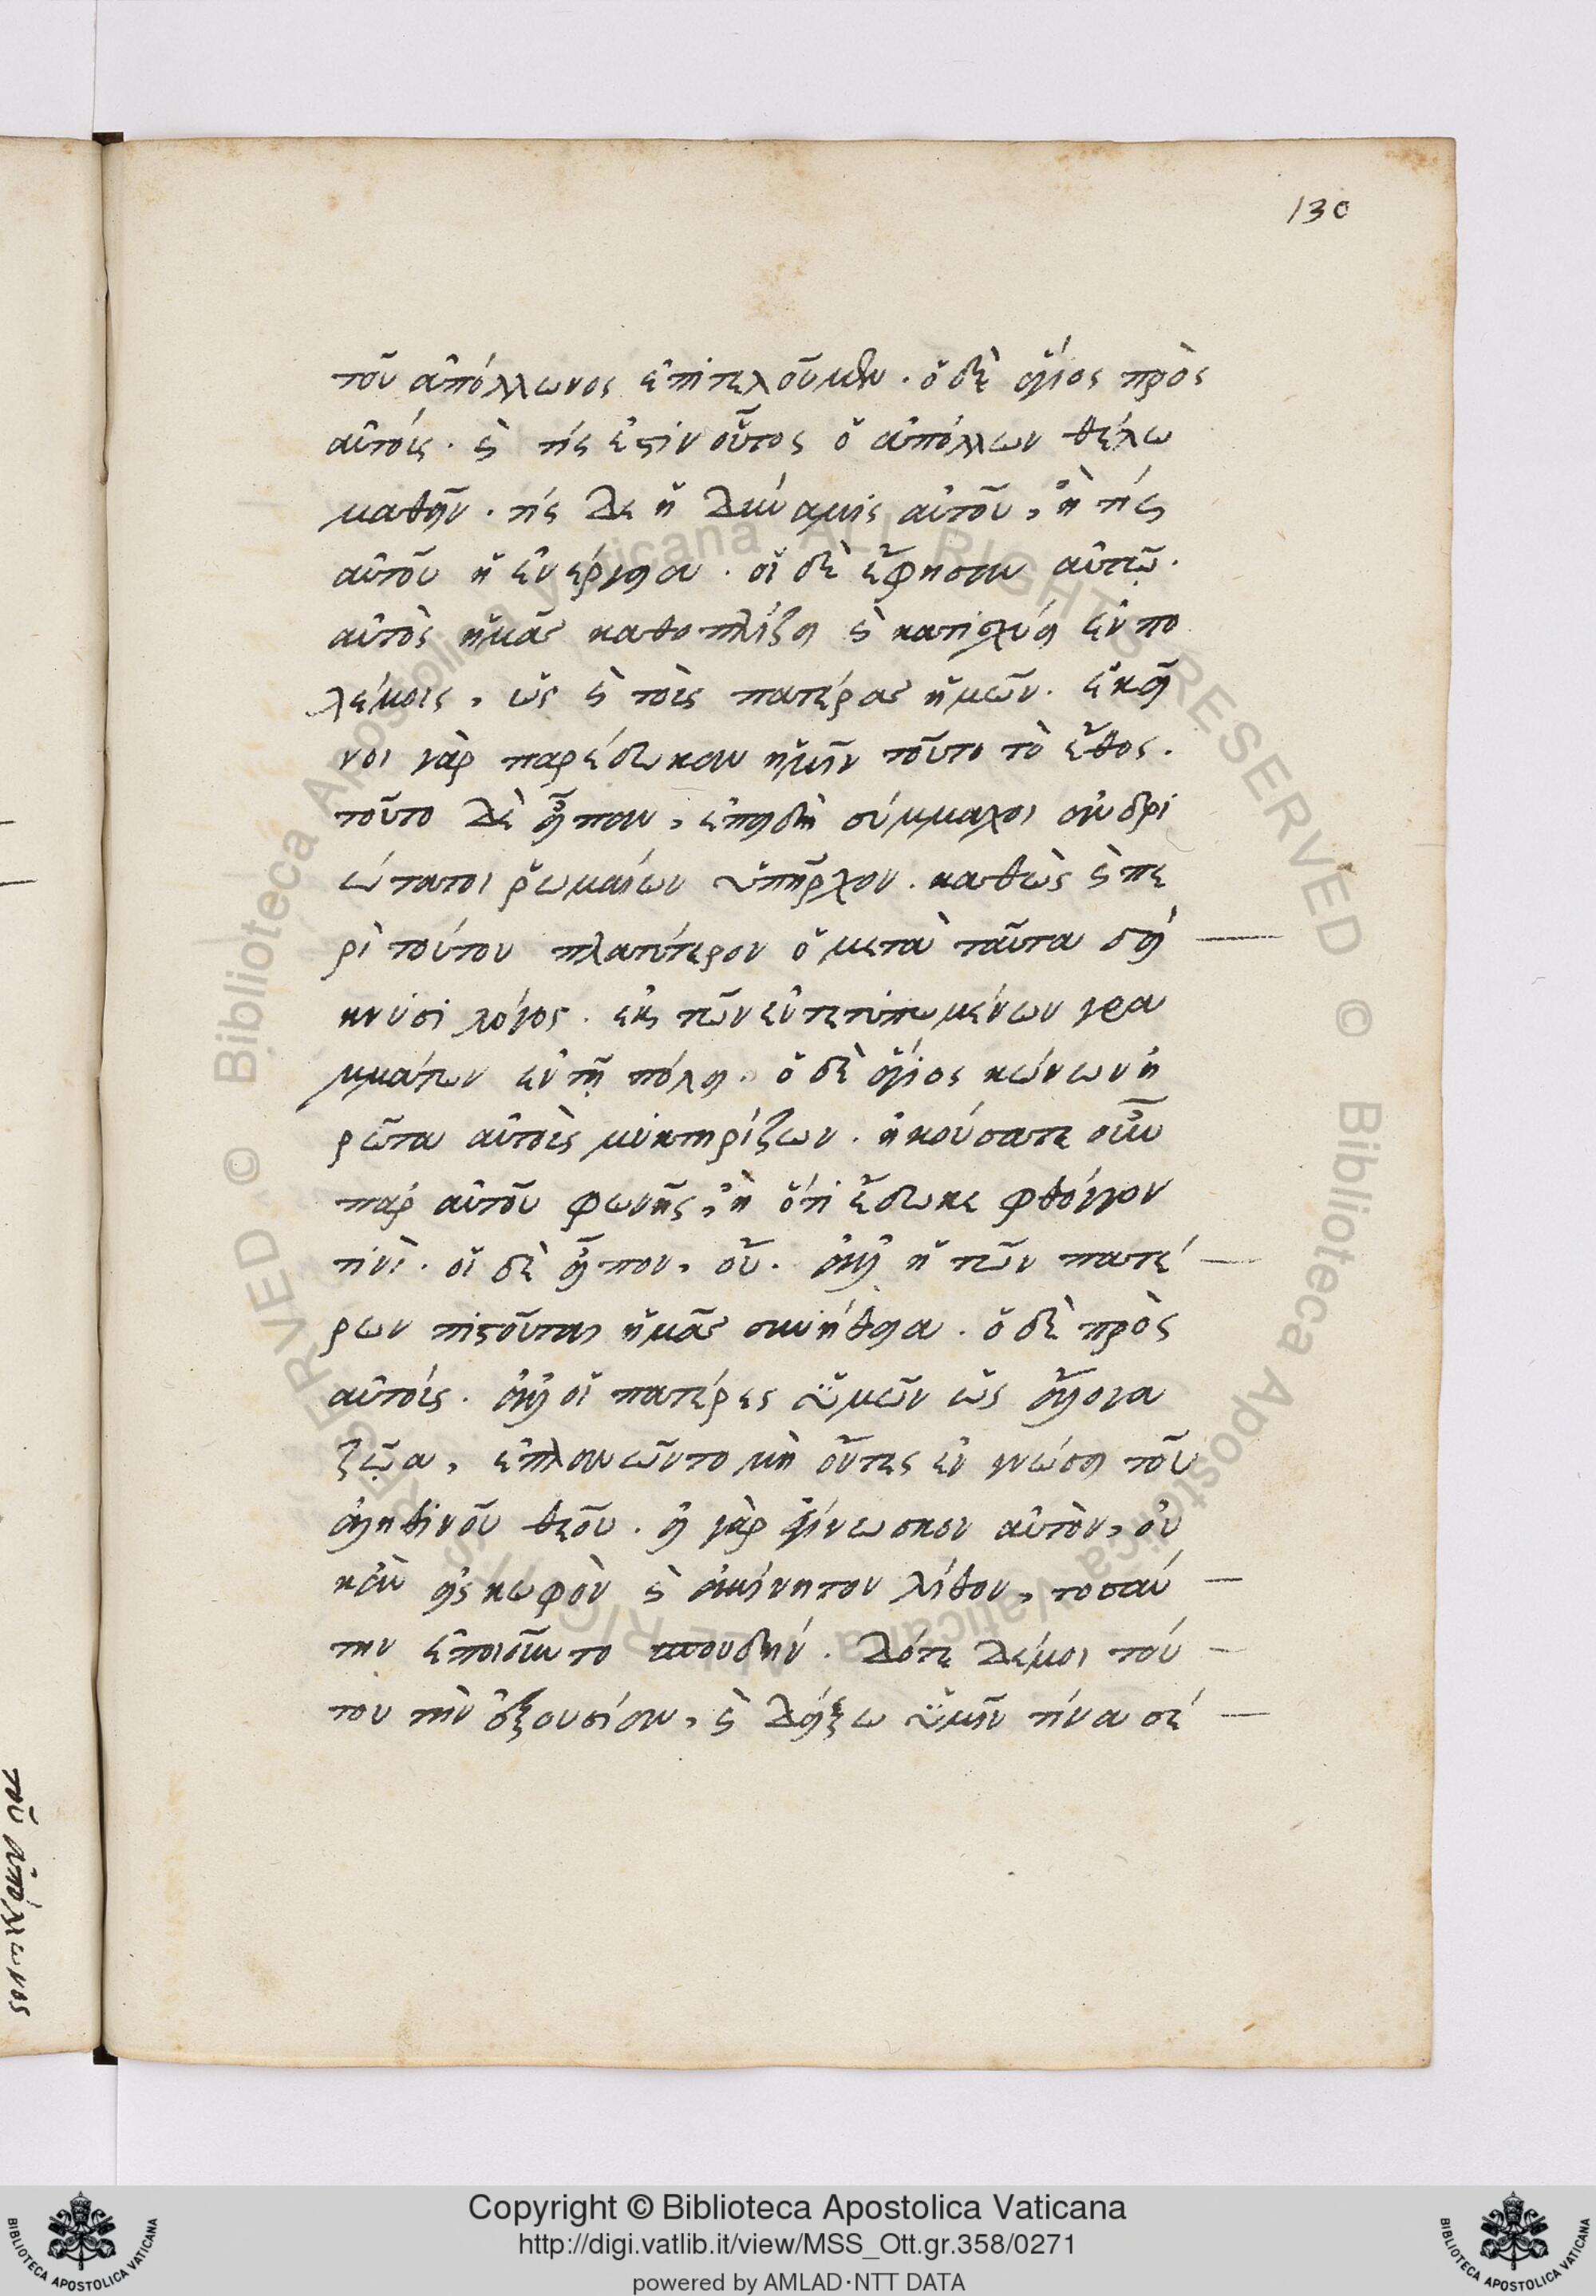 130
τοῦ ἀπόλλωνος ἐπιτελοῦμεν. ὁ δὲ ἅγιος πρὸς
αὐτούς. καὶ τίς ἐστὶν οὗτος ὁ ἀπόλλων θέλω
μαθεῖν. τίς δε ἡ δύναμις αὐτοῦ, ἢ τίς
αὐτοῦ ἡ ἐνέργεια. οἱ δὲ ἔφησαν αὐτῷ.
αὐτὸς ἡμᾶς καθοπλίζει καὶ κατισχύει ἐν πο
λέμοις, ὡς καὶ τοὺς πατέρας ἡμῶν. ἐκεῖ
νοι γὰρ παρέδωκαν ἡμῖν τοῦτο τὸ ἔθος.
τοῦτο δὲ εἶπαν, ἐπειδὴ σύμμαχοι ἀνδρι
ώτατοι ῥωμαίων ὑπῆρχον. καθὼς καὶ πε
ρὶ τούτου πλατύτερον ὁ μετὰ ταῦτα δεί
κνυσι λόγος. ἐκ τῶν ἐντετυπωμένων γρα
μμάτων ἐν τῇ πόλει. ὁ δὲ ἅγιος κώνων ἠ
ρῶτα αὐτοὺς μυκτηρίζων. ἠκούσατε οὖν
παρ αὐτοῦ φωνῆς, ἢ ὅτι ἔδωκε φθόγγον
τινὶ. οἱ δὲ εἶπον, οὔ. ἀλλ ἡ τῶν πατέ
ρων πιστοῦται ἡμᾶς συνήθεια. ὁ δὲ πρὸς
αὐτούς. ἀλλ οἱ πατέρες ὑμῶν ὡς ἄλογα
ζῶα, ἐπλανῶντο μὴ ὄντες ἐν γνώσει τοῦ
ἀληθινοῦ θεοῦ. εἰ γὰρ ἐγίνωσκον αὐτὸν, οὐ
κἂν εἰς κωφὸν καὶ ἀκίνητον λίθον, τοσαύ
την ἐποιοῦντο σπουδήν. δότε δέ μοι τού
του τὴν ἐξουσίαν, καὶ δείξω ὑμῖν τίνα σέ
τοῦ ἀπόλλωνος
Copyright © Biblioteca Apostolica Vaticana
http://digi.vatlib.it/view/MSS_Ott.gr.358/0271
powered by AMLAD·NTT DATA
BIBLIOTECA APOSTOLICA VATICANA
BIBLIOTECA APOSTOLICA VATICANA
© Biblioteca Apostolica Vaticana ALL RIGHTS RESERVED © Biblioteca Apostolica Vaticana ALL RIGHTS RESERVED